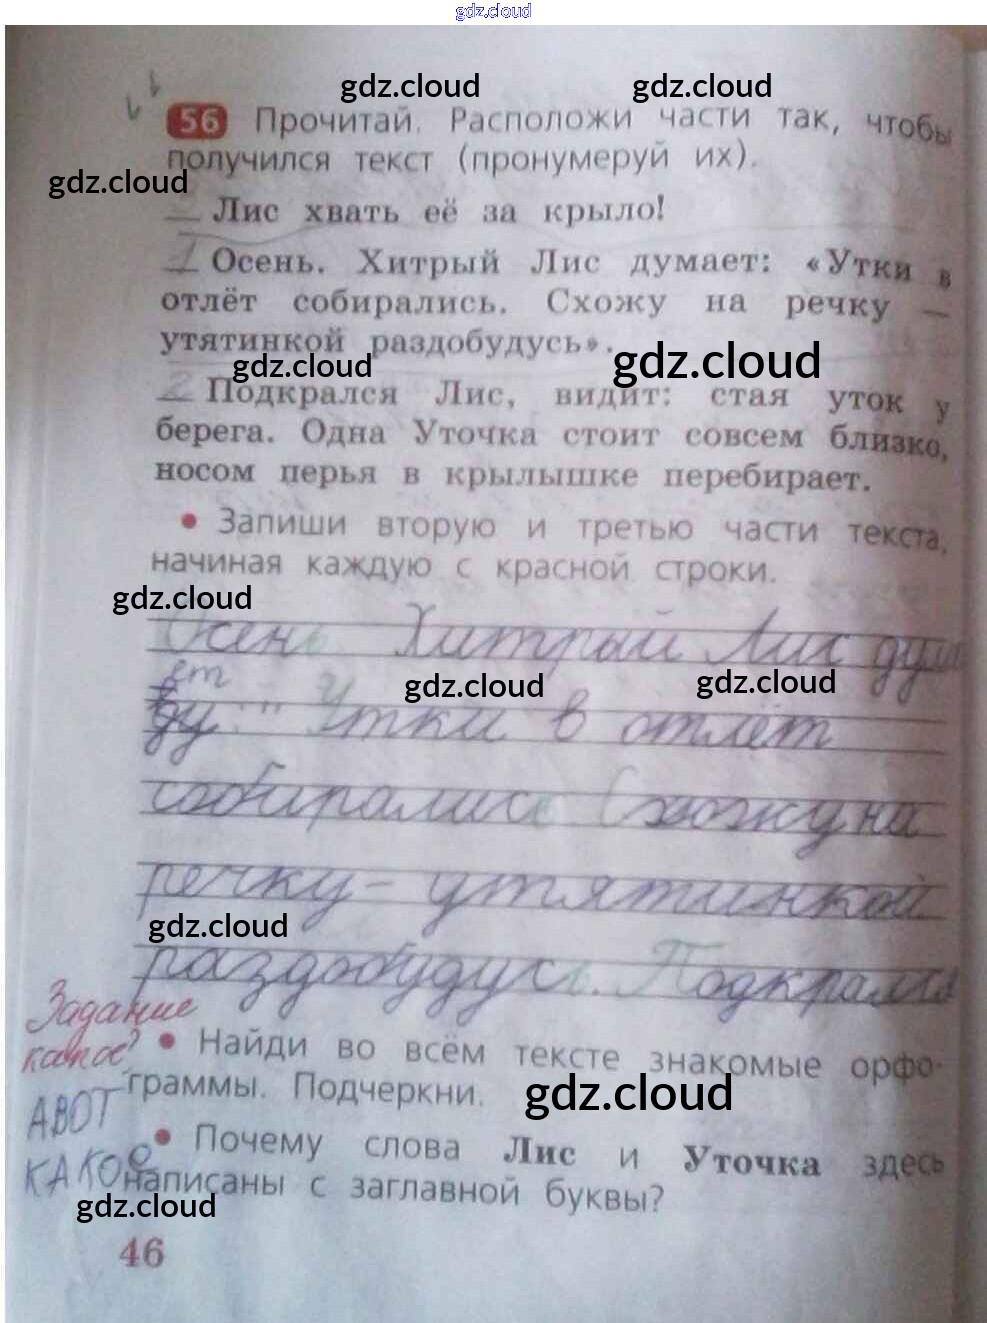 gdz.cloud
gdz.cloud gdz.cloud
56 Прочитай. Расположи части так, чтобы
получился текст (пронумеруй их).
gdz.cloud
Лис хвать её за крыло!
1 Осень. Хитрый Лис думает: «Утки в
отлёт собирались. Схожу на речку —
утятинкой раздобудусь».
gdz.cloud gdz.cloud
2 Подкрался Лис, видит: стая уток у
берега. Одна Уточка стоит совсем близко,
носом перья в крылышке перебирает.
• Запиши вторую и третью части текста,
начиная каждую с красной строки.
gdz.cloud
Осень. Хитрый Лис дума
ет
gdz.cloud gdz.cloud
ду: " Утки в отлёт
собирались Схожу на
речку – утятинкой
gdz.cloud
раздобудусь. Подкрался
Задание
какое?
• Найди во всём тексте знакомые орфо-
граммы. Подчеркни.
gdz.cloud
АВОТ
КАКОЕ
• Почему слова Лис и Уточка здесь
написаны с заглавной буквы?
gdz.cloud
46